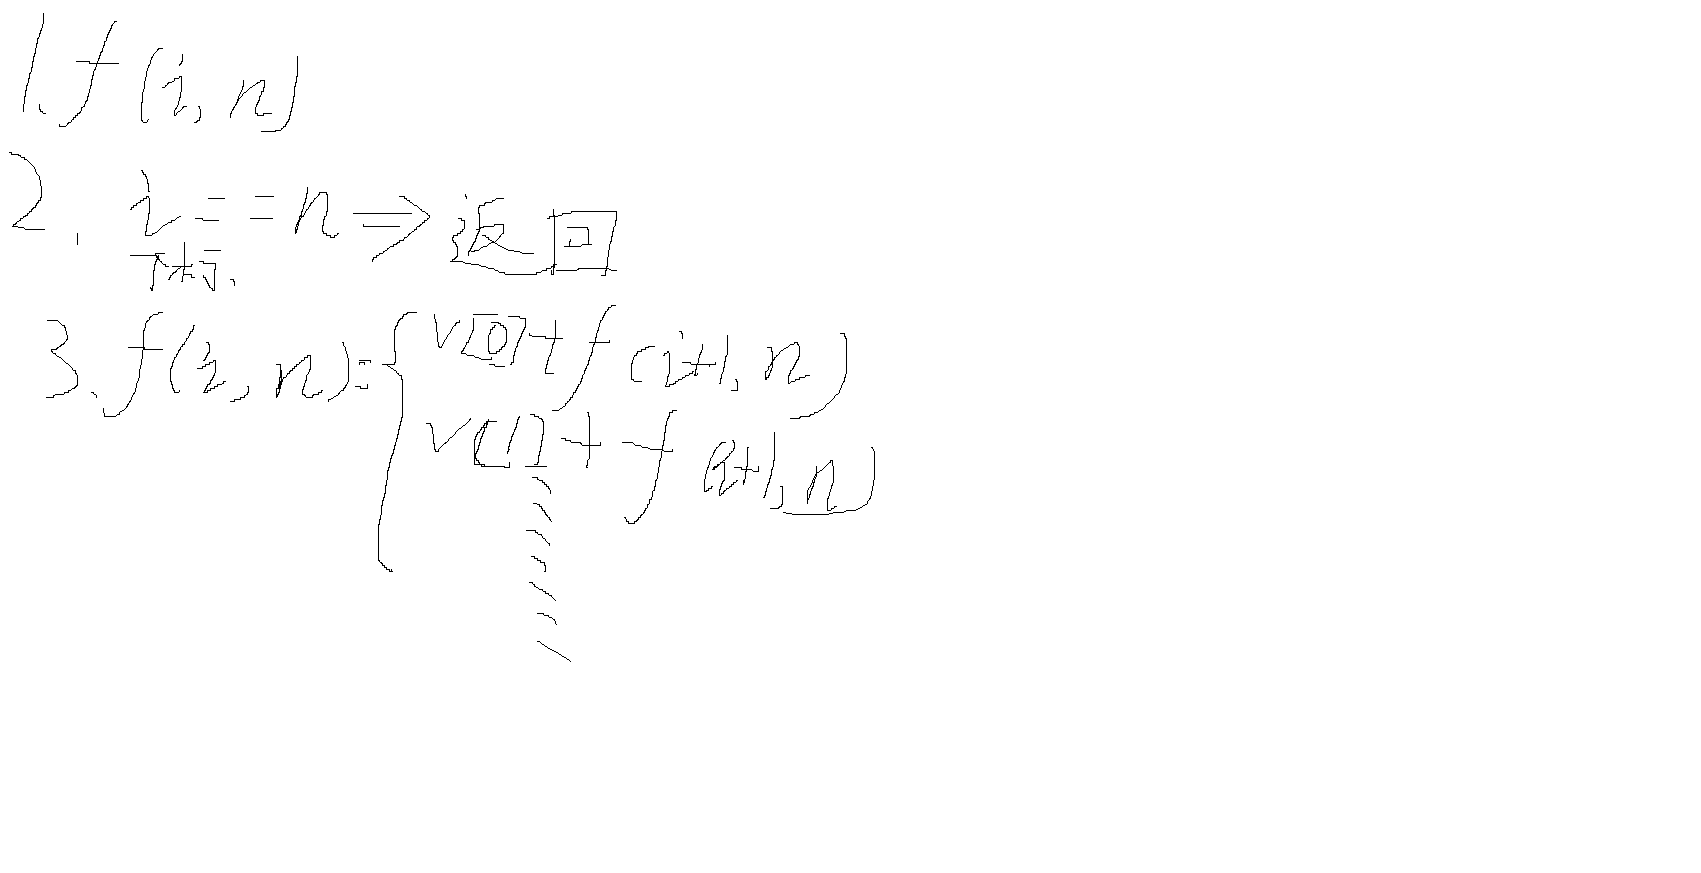 1. f(i, n)
2. i == n ⇒ 返回
下标.
3. f(i, n) = { v[0] + f(i+1, n)
v[1] + f(i+1, n)